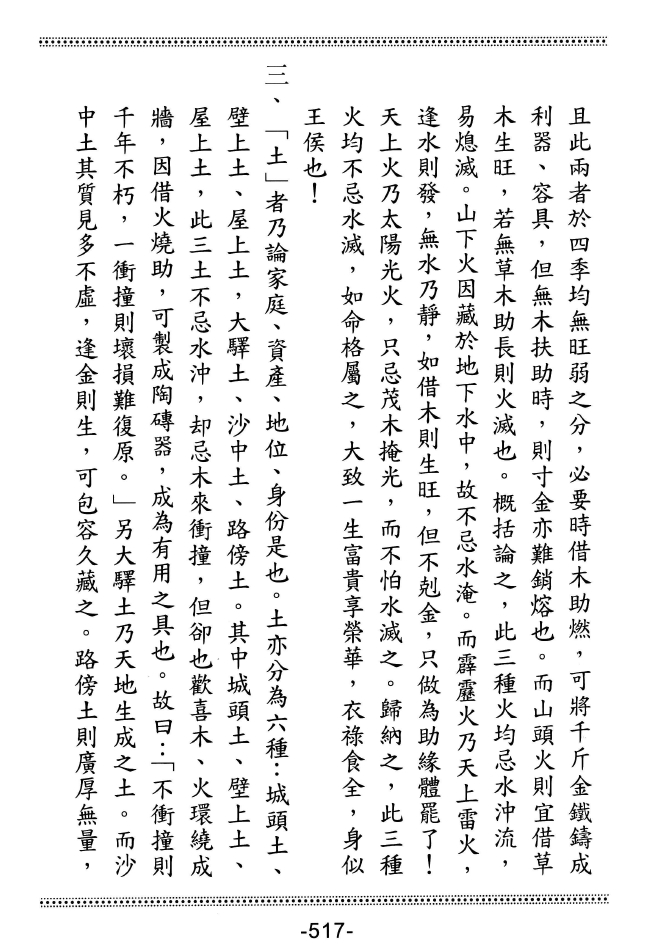 且此兩者於四季均無旺弱之分，必要時借木助燃，可將千斤金鐵鑄成
利器、容具，但無木扶助時，則寸金亦難銷熔也。而山頭火則宜借草
木生旺，若無草木助長則火滅也。概括論之，此三種火均忌水沖流，
易熄滅。山下火因藏於地下水中，故不忌水淹。而霹靂火乃天上雷火，
逢水則發，無水乃靜，如借木則生旺，但不剋金，只做為助緣體罷了！
天上火乃太陽光火，只忌茂木掩光，而不怕水滅之。歸納之，此三種
火均不忌水滅，如命格屬之，大致一生富貴享榮華，衣祿食全，身似
王侯也！
三、「土」者乃論家庭、資產、地位、身份是也。土亦分為六種：城頭土、
壁上土、屋上土，大驛土、沙中土、路傍土。其中城頭土、壁上土、
屋上土，此三土不忌水沖，却忌木來衝撞，但卻也歡喜木、火環繞成
牆，因借火燒助，可製成陶磚器，成為有用之具也。故曰：「不衝撞則
千年不朽，一衝撞則壞損難復原。」另大驛土乃天地生成之土。而沙
中土其質見多不虛，逢金則生，可包容久藏之。路傍土則廣厚無量，
-517-